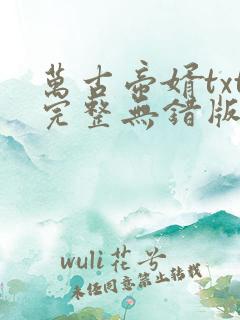 萬古帝婿txt
完整無錯版
wuli花兮
未經同意禁止轉載